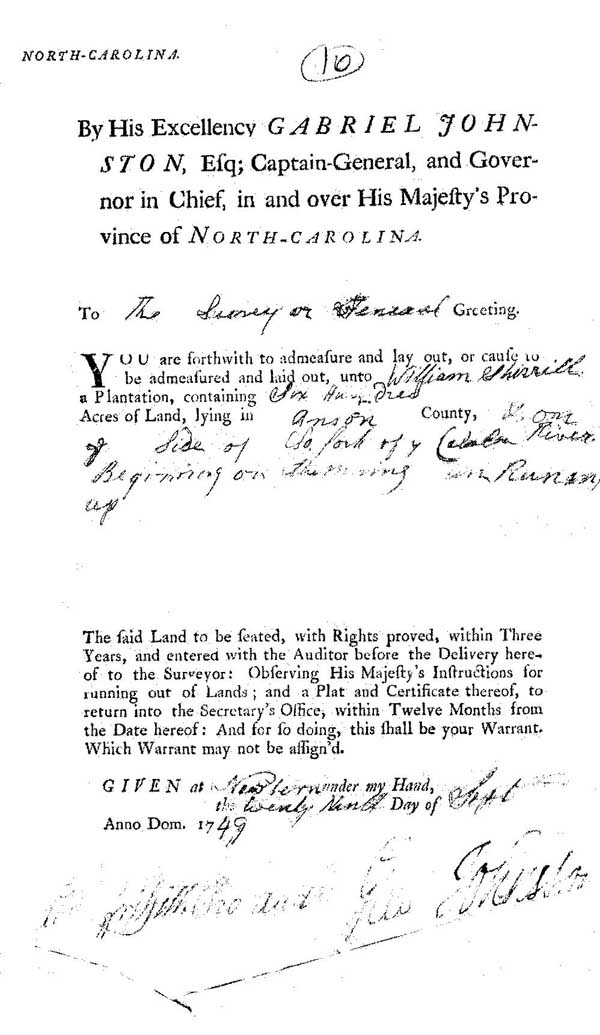 NORTH-CAROLINA.
10
By His Excellency GABRIEL JOHN-
STON, Esq; Captain-General, and Gover-
nor in Chief, in and over His Majeſty's Pro-
vince of NORTH-CAROLINA.
To The Survey or General Greeting.
YOU are forthwith to admeaſure and lay out, or cauſe to
be admeaſured and laid out, unto William Sherrill
a Plantation, containing Six Hundred
Acres of Land, lying in Anson County, on
y Side of So fork of y Cataba River
Beginning on running Runing
up
The ſaid Land to be ſeated, with Rights proved, within Three
Years, and entered with the Auditor before the Delivery here-
of to the Surveyor: Obſerving His Majeſty's Inſtructions for
running out of Lands; and a Plat and Certificate thereof, to
return into the Secretary's Office, within Twelve Months from
the Date hereof: And for ſo doing, this ſhall be your Warrant.
Which Warrant may not be aſſign'd.
GIVEN at Newbern under my Hand,
the twenty Ninth Day of Sept
Anno Dom. 1749
Johnston